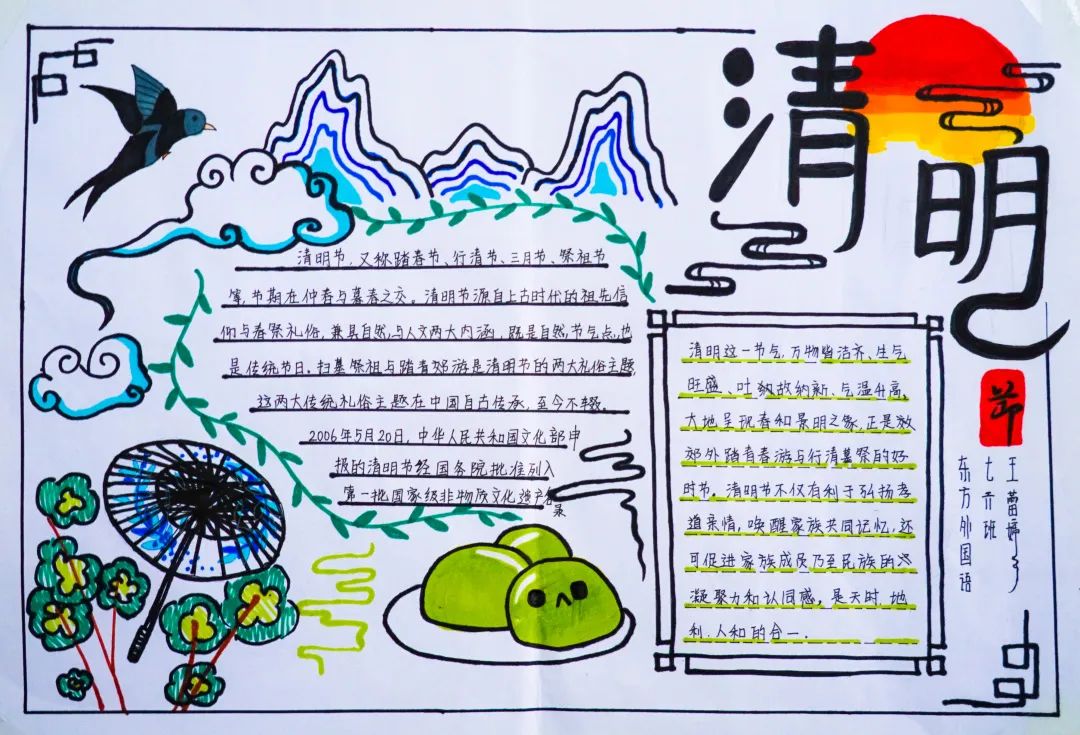 清明
节
清明节，又称踏春节、行清节、三月节、祭祖节
等，节期在仲春与暮春之交。清明节源自上古时代的祖先信
仰与春祭礼俗，兼具自然与人文两大内涵，既是自然节气点，也
是传统节日。扫墓祭祖与踏青郊游是清明节的两大礼俗主题，
这两大传统礼俗主题在中国自古传承，至今不辍。
2006年5月20日，中华人民共和国文化部申
报的清明节经国务院批准列入
第一批国家级非物质文化遗产名
录
清明这一节气，万物皆洁齐、生气
旺盛、吐故纳新、气温升高，
大地呈现春和景明之象，正是
郊外踏青春游与行清墓祭的好
时节。清明节不仅有利于弘扬孝
道亲情，唤醒家族共同记忆，还
可促进家族成员乃至民族的
凝聚力和认同感，是天时、地
利、人和的合一.
王蕾婷
七 班
东方外国语